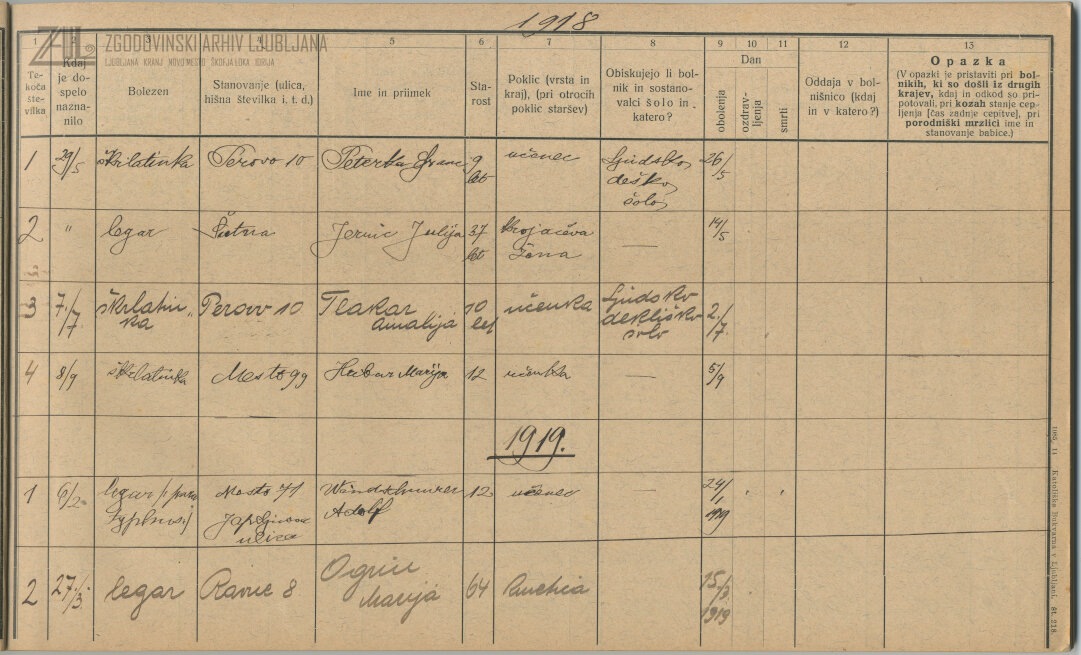 1918
ZGODOVINSKI ARHIV LJUBLJANA
LJUBLJANA KRANJ NOVO MESTO ŠKOFJA LOKA IDRIJA
1 2 3 4 5 6 7 8 9 10 11 12 13
Te-
koča
šte-
vilka
Kdaj
je do-
spelo
nazna-
nilo
Bolezen
Stanovanje (ulica,
hišna številka i. t. d.)
Ime in priimek
Sta-
rost
Poklic (vrsta in
kraj), (pri otrocih
poklic staršev)
Obiskujejo li bol-
nik in sostano-
valci šolo in
katero?
Dan
obolenja
ozdrav-
ljenja
smrti
Oddaja v bol-
nišnico (kdaj
in v katero?)
Opazka
(V opazki je pristaviti pri bol-
nikih, ki so došli iz drugih
krajev, kdaj in odkod so pri-
potovali, pri kozah stanje cep-
ljenja [čas zadnje cepitve], pri
porodniški mrzlici ime in
stanovanje babice.)
1 29/5 škrlatinka Perovo 10 Peterka Franc 9 let učenec Ljudsko deško šolo 26/5
2 " legar Šutna Julija 37 let krojačeva žena — 14/5
3 7./7. škrlatin-ka Perovo 10 Amalija 10 let učenka Ljudsko dekliško šolo 2./7.
4 8/9 škrlatinka Mesto 99 Hubar Marija 12 učenka — 5/9
1919.
1 6/2 legar Typhus) Mesto 71 ulica Adolf 12 učenec — 24/1 919
2 27./3. legar 8 Marija 64 15./3 1919
1085, 14 Katoliška Bukvarna v Ljubljani. Št. 218.